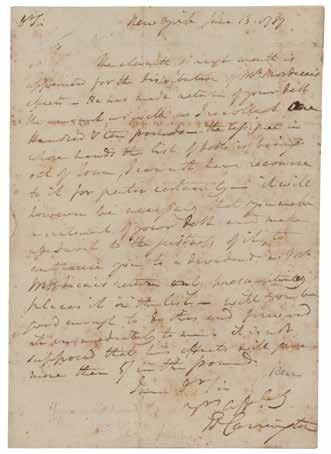 New York June 13. 1789
Sir
The eleventh of next month is
appointed for the distribution of Mr. Mordecai's
effects - He has made return of your debt
the amount as well as I recollect One
Hundred & ten pounds - the assignee in
whose hands the list of debts is, being
out of Town, I cannot have recourse
to it for greater certainty - it will
however be necessary that you make
a return of your debt and make
affidavit to the justness of it, to
entitle you to a dividend as Mr
Mordecai's return only
places it on the list - will you be
good enough to do this and forward
it immediately to me - it is not
supposed that his effects will pay
more than 5/ in the pound.
I am Dr Sir
Your
E Carrington